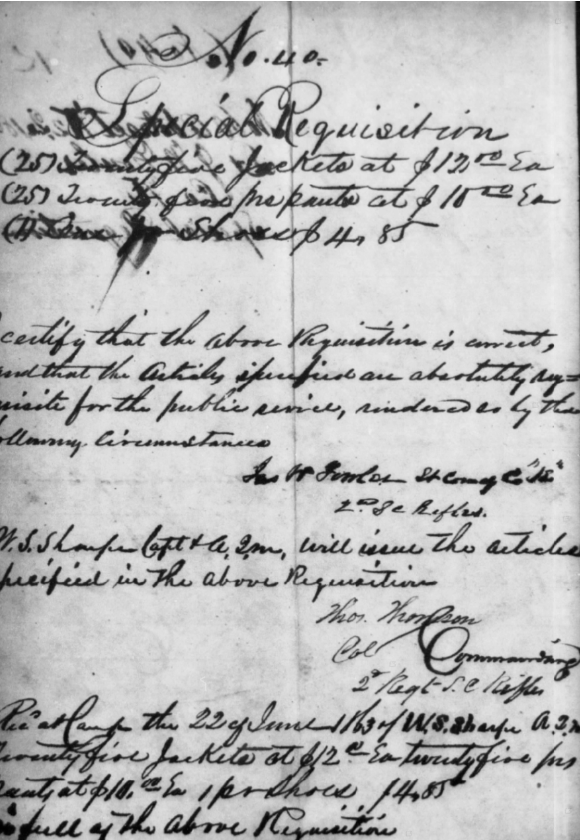 No. 40.
Special Requisition
(25) Twenty five Jackets at $12.00 Ea
(25) Twenty five prs pants at $10.00 Ea
(1) One pr Shoes $4,85
certify that the above Requisition is correct,
and that the articles specified are absolutely req=
uisite for the public service, rendered so by the
ollowing Circumstances
Jas W Fowler Lt Comdg Co "K"
2nd S C Rifles.
W. S. Sharpe Capt & A. Q. M, will issue the articles
pecified in the above Requisition
Thos. Thomson
Col Commanding
2d Regt S. C Rifles
Rec'd at Camp the 22 of June 1863 of W. S. Sharpe A. Q. M
Twenty five Jackets at $12.00 Ea twenty five prs
pants at $10.00 Ea 1 pr Shoes $4,85
full of the above Requisition